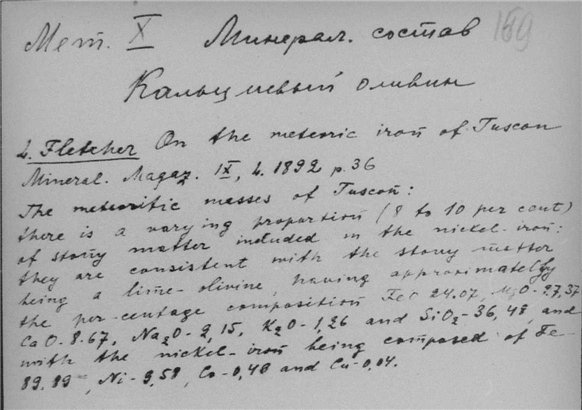 Мет. X Минерал. состав 159
Кальциевый оливин
L. Fletcher On the meteoric iron of Tuscon
Mineral. Magaz. IX, L. 1892 p. 36
The meteoritic masses of Tuscon:
there is a varying proportion (8 to 10 per cent)
of stony matter included in the nickel-iron:
they are consistent with the stony matter
being a lime-olivine, having approximately
the per-centage composition FeO 24.07, MgO-27,37
CaO-8.67, Na2O-2,15, K2O-1,26 and SiO2-36,48, and
with the nickel-iron being composed of Fe-
89.89, Ni-9,58, Co-0,48 and Cu-0,04.